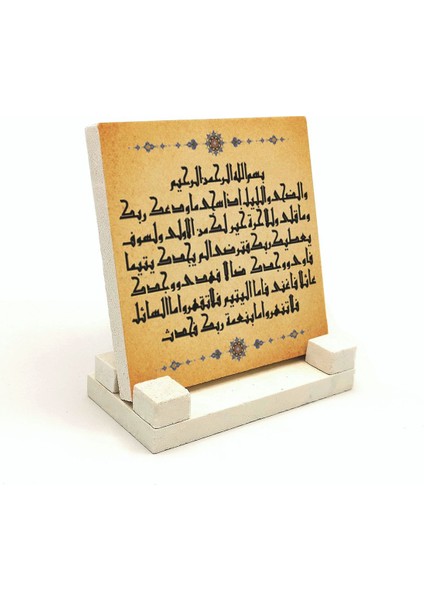 بسم الله الرحمن الرحيم
والضحى والليل إذا سجى ما ودعك ربك
وما قلى وللآخرة خير لك من الأولى ولسوف
يعطيك ربك فترضى ألم يجدك يتيما
فاوى ووجدك ضالا فهدى ووجدك
عائلا فاغنى فاما اليتيم فلا تقهر واما السائل
فلا تنهر واما بنعمة ربك فحدث